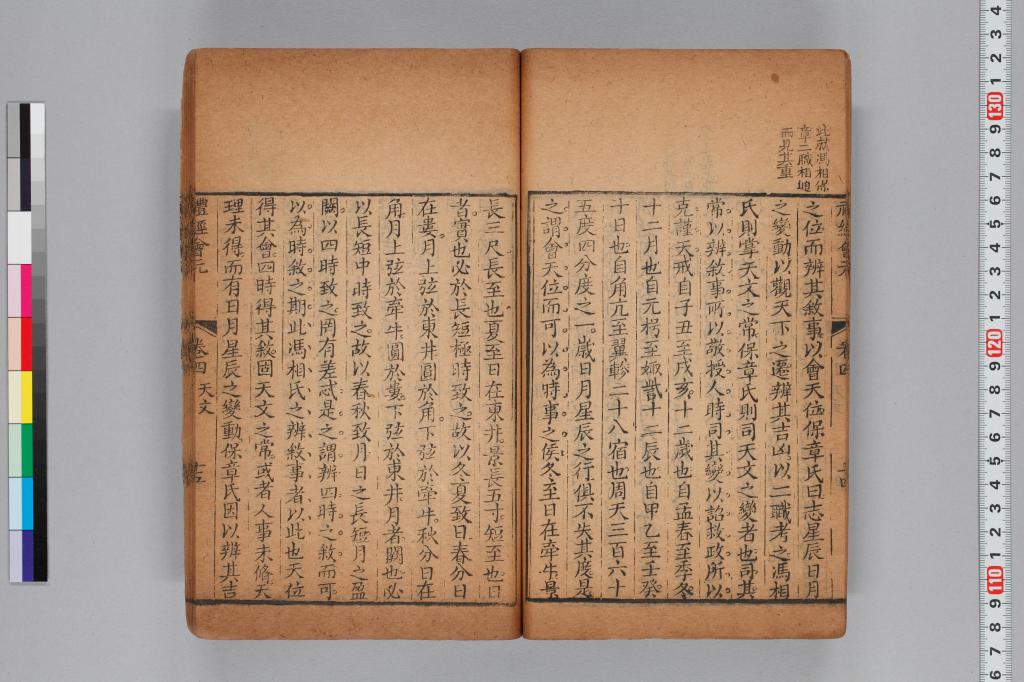 此就馮相保
章二職相迪
而見其重
之位而辨其敘事以會天位保章氏曰志星辰日月
之變動以觀天下之遷辨其吉凶以二職考之馮相
氏則掌天文之常保章氏則司天文之變者也司其
常以辨敘事所以敬授人時司其變以詔救政所以
克謹天戒自子丑至戌亥十二歲也自孟春至季冬
十二月也自元枵至娵訾十二辰也自甲乙至壬癸
十日也自角亢至翼軫二十八宿也周天三百六十
五度四分度之一歲日月星辰之行俱不失其度是
之謂會天位而可以為時事之候冬至日在牽牛景
長三尺長至也夏至日在東井景長五寸短至也日
者實也必於長短極時致之故以冬夏致日春分日
在婁月上弦於東井圓於角下弦於牽牛秋分日在
角月上弦於牽牛圓於婁下弦於東井月者闕也必
以長短中時致之故以春秋致月日之長短月之盈
闕以四時致之罔有差忒是之謂辨四時之敘而可
以為時敘之期此馮相氏之辨敘事者以此也天位
得其會四時得其敘固天文之常或者人事未脩天
理未得而有日月星辰之變動保章氏因以辨其吉
禮經會元
卷四 天文